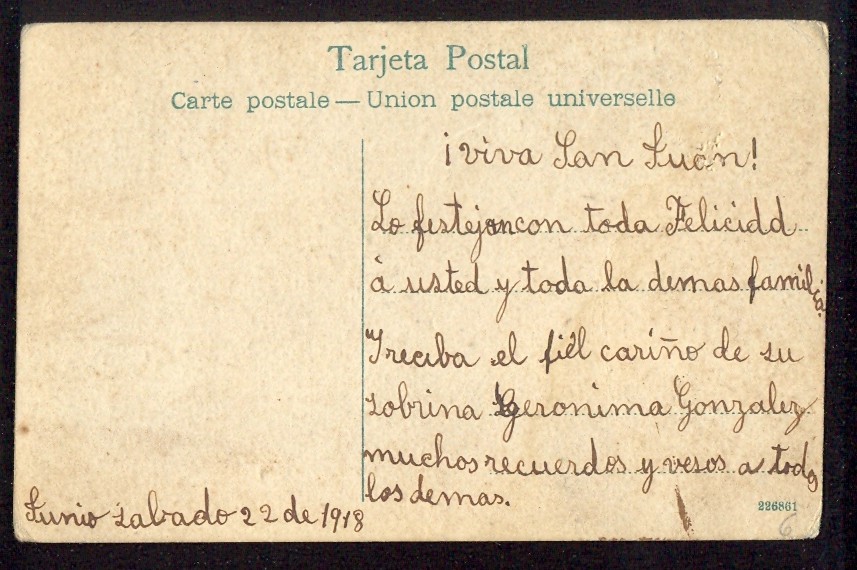 Tarjeta Postal
Carte postale — Union postale universelle
¡viva San Juan!
Lo festejancon toda Felicidd
á usted y toda la demas familia.
Y reciba el fiél cariño de su
sobrina Geronima Gonzalez
muchos recuerdos y vesos a todos
los demas.
Junio sabado 22 de 1918
226861
6